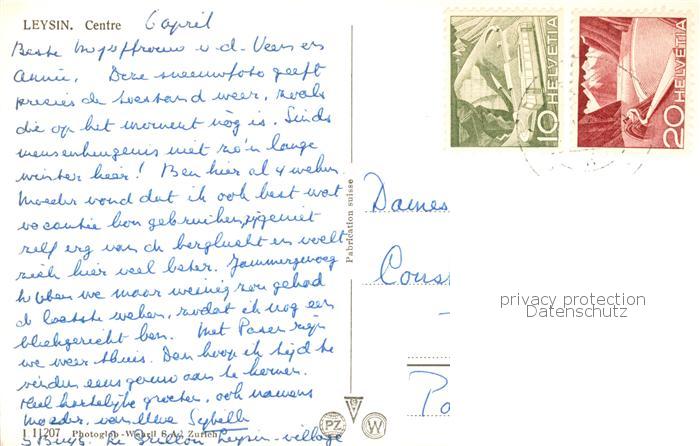 LEYSIN. Centre 6 april
Beste Mejuffrouw v.d. Veer en
Annie, Deze sneeuwfoto geeft
precies de toestand weer, zoals
die op het moment nòg is. Sinds
mensenheugenis niet zo'n lange
winter hier! Ben hier al 4 weken.
Moeder vond dat ik ook best wat
vacantie kon gebruiken, zij geniet
zelf erg van de berglucht en voelt
zich hier veel beter. Jammergenoeg
hebben we maar weinig zon gehad
de laatste weken, zodat ik nog een
bleekgezicht ben. Met Pasen zijn
we weer thuis. Dan hoop ik tijd te
vinden eens gauw aan te komen.
Veel hartelijke groeten, ook namens
Moeder, van Uwe Sybelle
Le Grillon Leysin-village
11207 Photoglob-Wehrli S.A., Zurich
Fabrication suisse
PZ
W
10 HELVETIA
20 HELVETIA
Dames
Cons
Po
privacy protection
Datenschutz